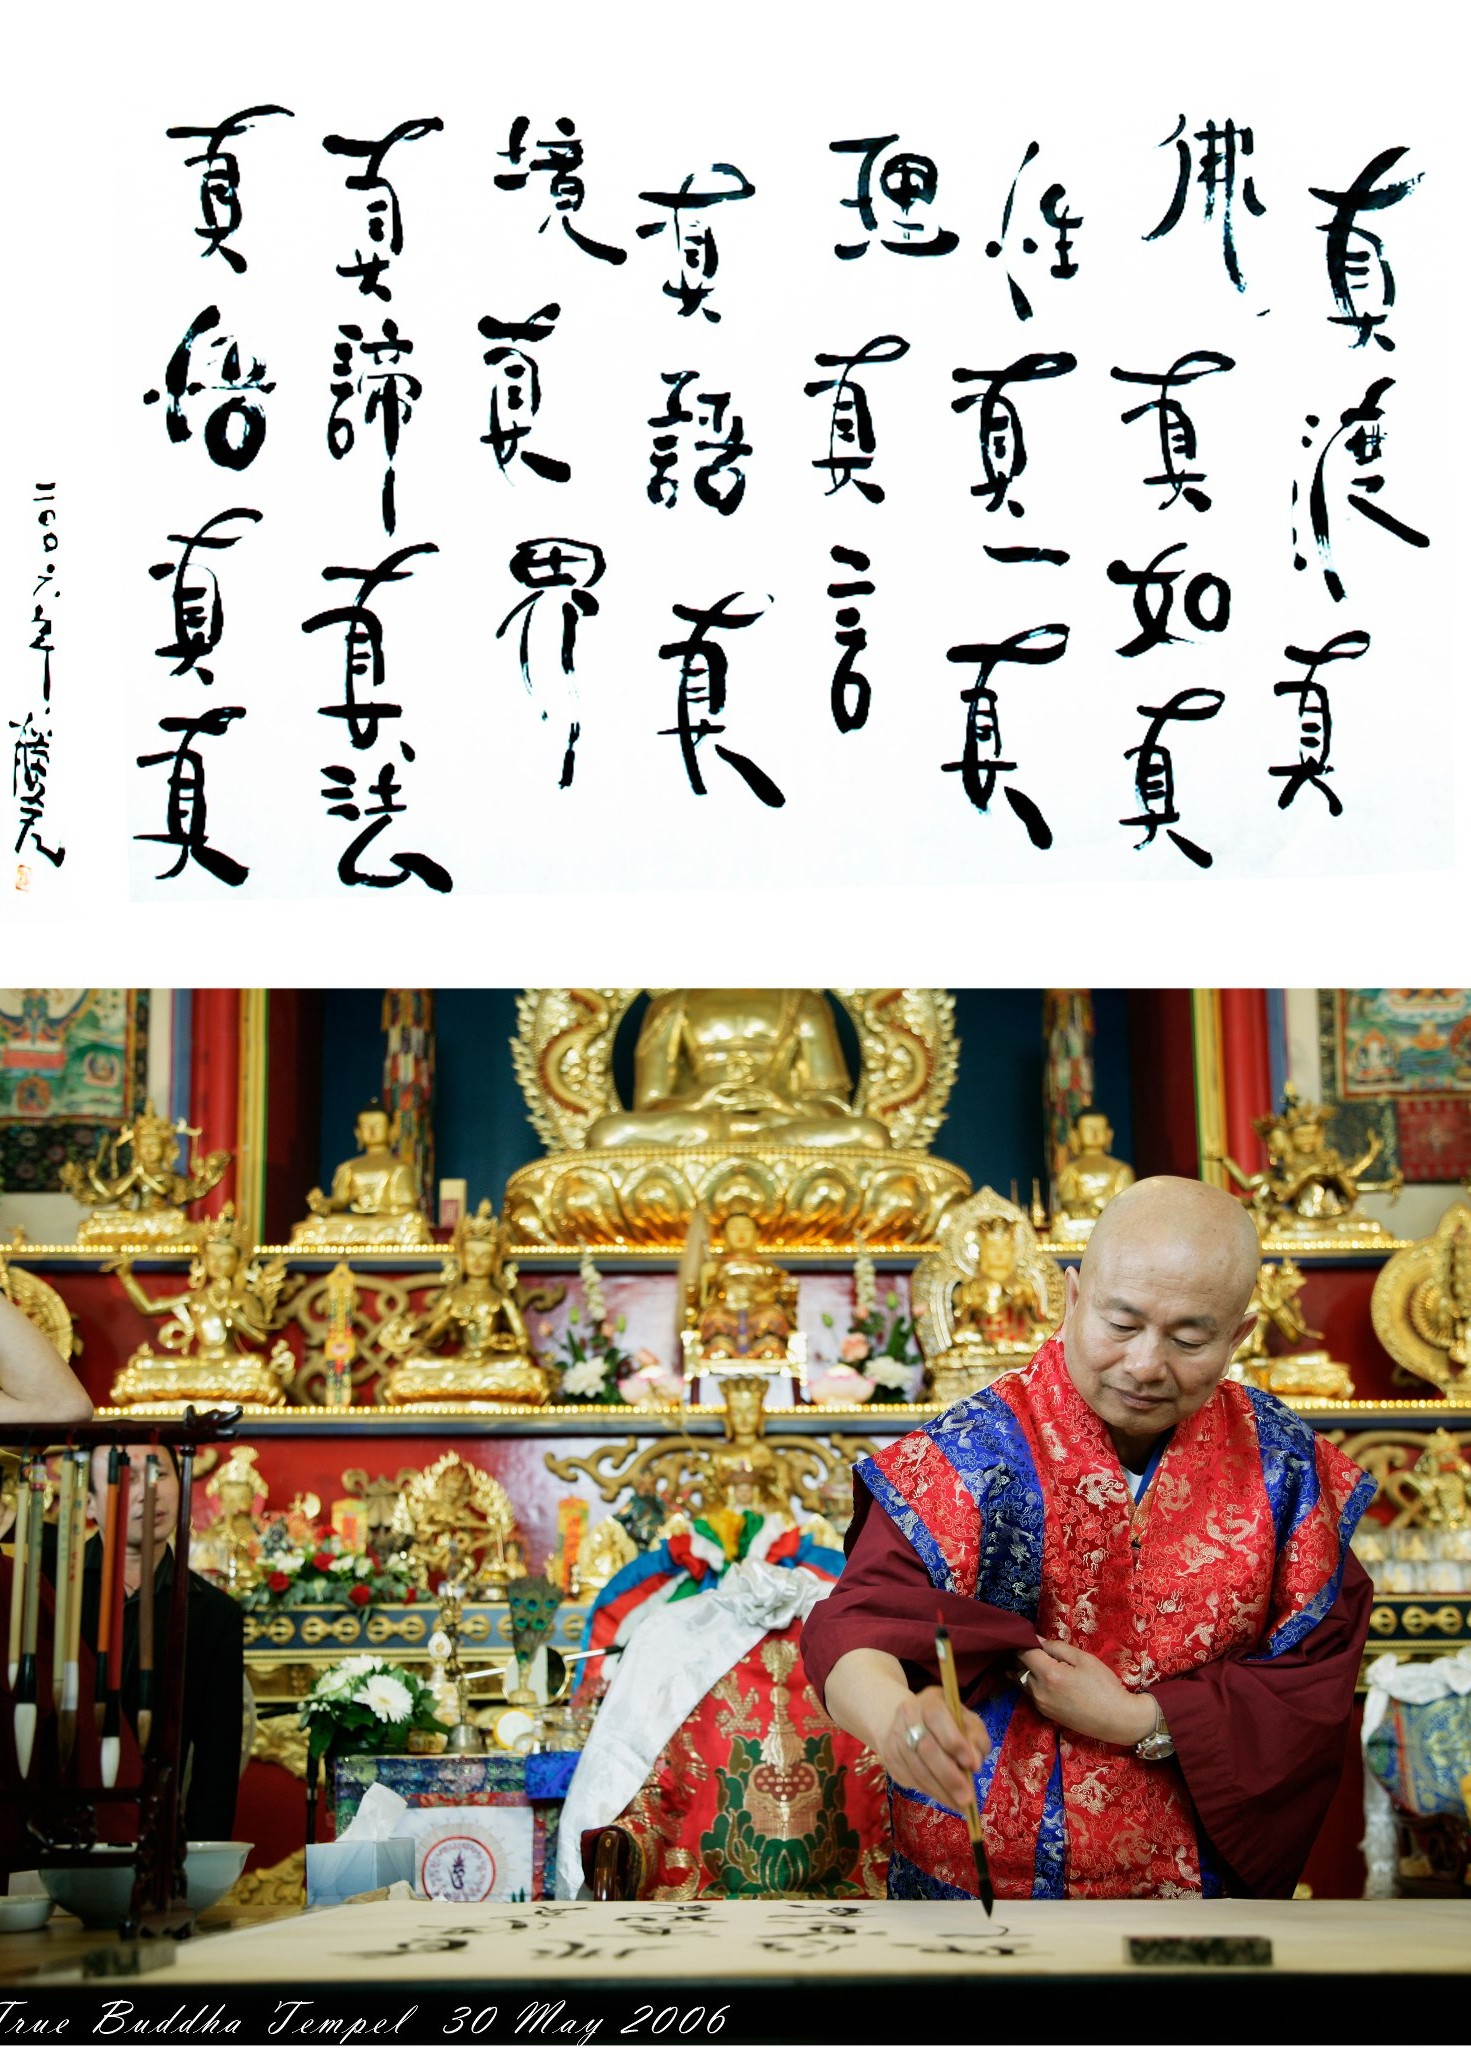 真渡真
佛真如真
性真一真
理真言
真語真
境真界
真諦真法
真僧真真
二00六年 勝彥
True Buddha Tempel 30 May 2006